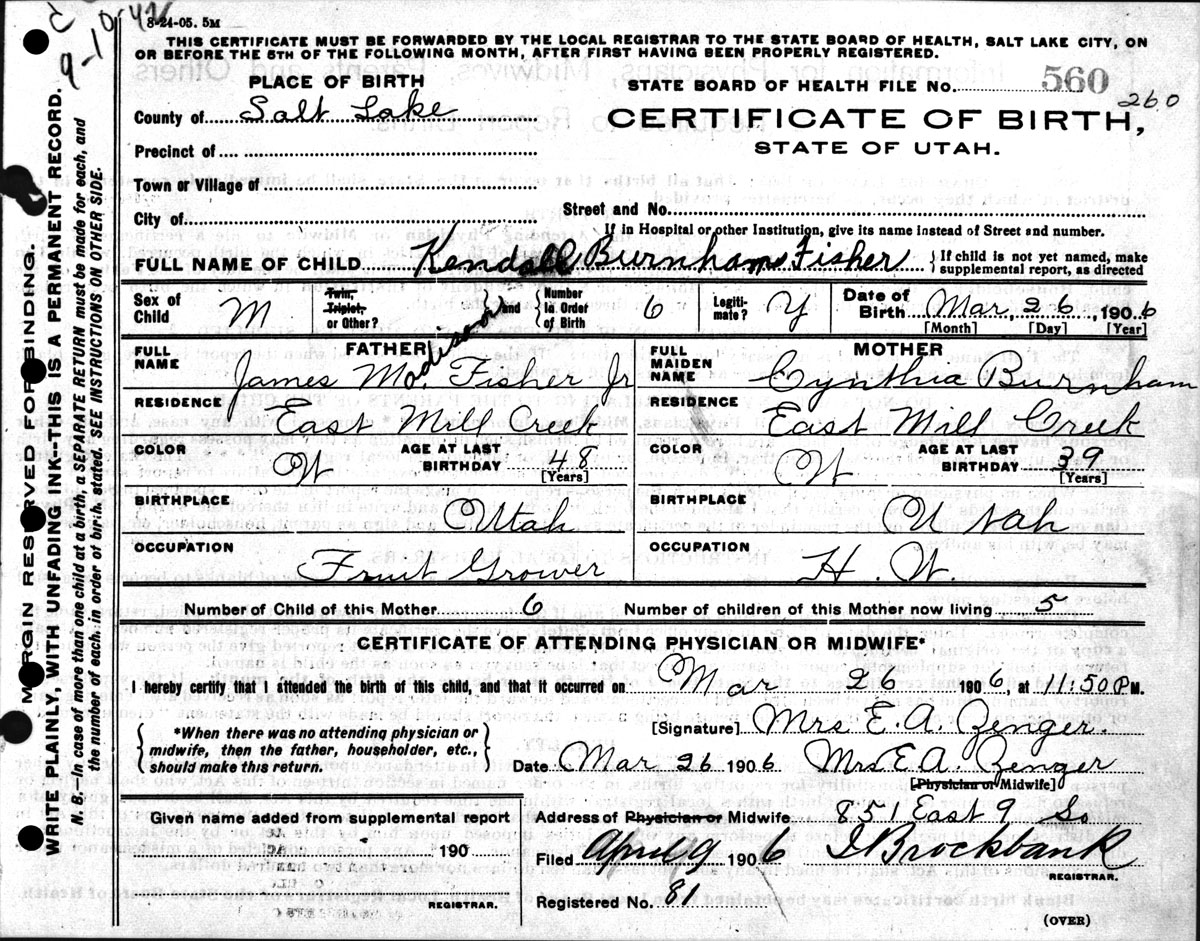 c
9-10-42
8-24-05. 5M
THIS CERTIFICATE MUST BE FORWARDED BY THE LOCAL REGISTRAR TO THE STATE BOARD OF HEALTH, SALT LAKE CITY, ON
OR BEFORE THE 5TH OF THE FOLLOWING MONTH, AFTER FIRST HAVING BEEN PROPERLY REGISTERED.
PLACE OF BIRTH
STATE BOARD OF HEALTH FILE NO. 560
260
County of Salt Lake
CERTIFICATE OF BIRTH,
STATE OF UTAH.
Precinct of
Town or Village of
City of
Street and No.
If in Hospital or other Institution, give its name instead of Street and number.
FULL NAME OF CHILD Kendall Burnham Fisher
If child is not yet named, make
supplemental report, as directed
Sex of Child M
Twin, Triplet, or Other? and Number in Order of Birth 6
Legitimate? Y
Date of Birth Mar, 26, 1906
[Month] [Day] [Year]
FATHER
MOTHER
FULL NAME James Madison Fisher Jr
FULL MAIDEN NAME Cynthia Burnham
RESIDENCE East Mill Creek
RESIDENCE East Mill Creek
COLOR W AGE AT LAST BIRTHDAY 48 [Years]
COLOR W AGE AT LAST BIRTHDAY 39 [Years]
BIRTHPLACE Utah
BIRTHPLACE Utah
OCCUPATION Fruit Grower
OCCUPATION H. W.
Number of Child of this Mother 6 Number of children of this Mother now living 5
CERTIFICATE OF ATTENDING PHYSICIAN OR MIDWIFE*
I hereby certify that I attended the birth of this child, and that it occurred on Mar 26 1906, at 11:50 P M.
*When there was no attending physician or
midwife, then the father, householder, etc.,
should make this return.
[Signature] Mrs E. A. Zenger.
Date Mar 26 1906 Mrs E A. Zenger
[Physician or Midwife]
Given name added from supplemental report
190
REGISTRAR.
Address of Physician or Midwife: 851 East 9 So
Filed April 9 1906 I Brockbank
REGISTRAR.
Registered No. 81
(OVER)
MARGIN RESERVED FOR BINDING.
WRITE PLAINLY, WITH UNFADING INK—THIS IS A PERMANENT RECORD.
N. B.—In case of more than one child at a birth, a SEPARATE RETURN must be made for each, and
the number of each, in order of birth, stated. SEE INSTRUCTIONS ON OTHER SIDE.